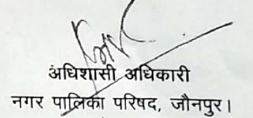 अधिशासी अधिकारी
नगर पालिका परिषद, जौनपुर।